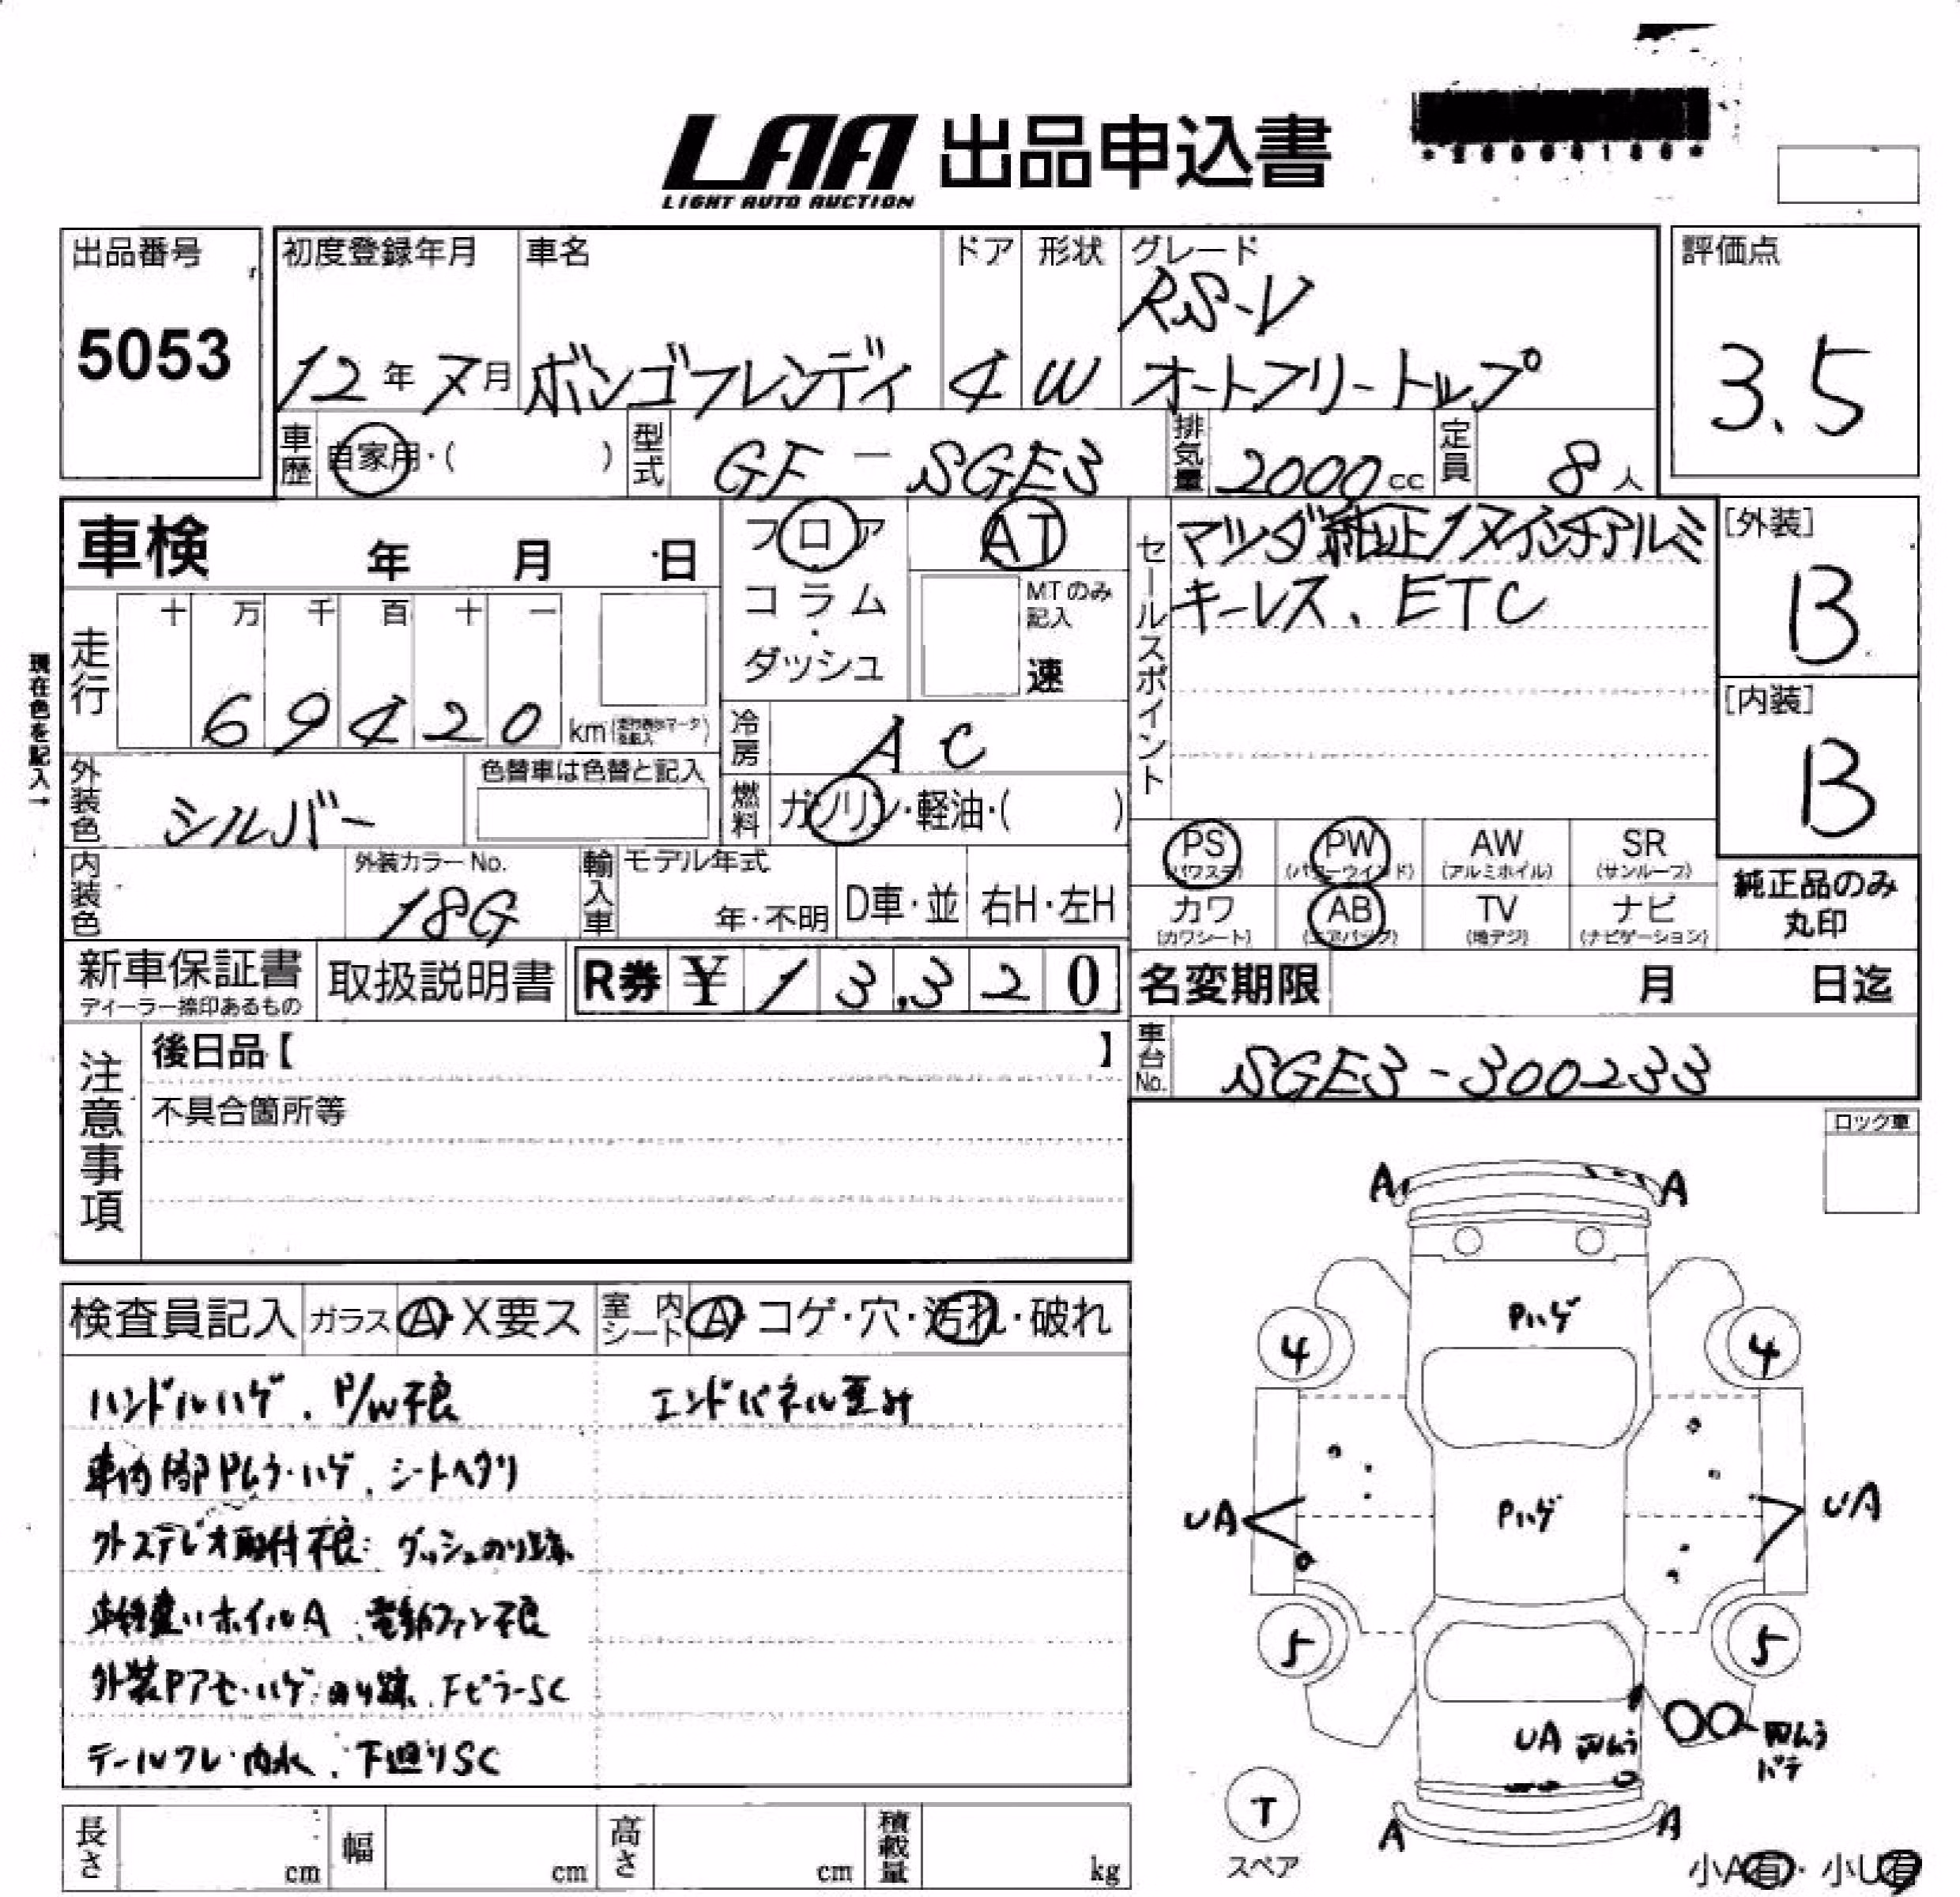 LAA 出品申込書
LIGHT AUTO AUCTION
出品番号
5053
初度登録年月
12年7月
車名
ボンゴフレンディ
ドア
4
形状
W
グレード
RS-V
オートフリートップ
評価点
3.5
車歴
自家用・( )
型式
GF-SGE3
排気量
2000cc
定員
8人
車検 年 月 日
フロア
コラム
・
ダッシュ
AT
MTのみ
記入
速
セールスポイント
マツダ純正17インチアルミ
キーレス、ETC
[外装]
B
[内装]
B
現在色を記入→
走行
十 万 千 百 十 一
69420 km
冷房
AC
外装色
シルバー
色替車は色替と記入
燃料
ガソリン・軽油・( )
内装色
外装カラーNo.
18G
輸入車
モデル年式
年・不明
D車・並
右H・左H
PS
(パワステ)
PW
(パワーウインド)
AW
(アルミホイル)
SR
(サンルーフ)
カワ
(カワシート)
AB
(エアバッグ)
TV
(地デジ)
ナビ
(ナビゲーション)
純正品のみ
丸印
新車保証書
ディーラー捺印あるもの
取扱説明書
R券 ¥13,320
名変期限 月 日迄
車台No.
SGE3-300233
注意事項
後日品【 】
不具合箇所等
ロック車
検査員記入
ガラス A・X要ス
室内シート A・コゲ・穴・汚れ・破れ
ハンドルハゲ、P/W不良
エンドパネル歪み
車内部Pムラ・ハゲ、シートヘタリ
外ステレオ取付不良、ダッシュのり跡
車種違いホイルA、電動ファン不良
外装Pアセ・ハゲ・のり跡、FピラーSC
テールワレ・内水、下廻りSC
A A
Pハゲ
4 4
Pハゲ
UA UA
5 5
UA 凹ムラ
凹ムラ
パテ
T
スペア
A A
小A有・小U有
長さ cm
幅 cm
高さ cm
積載量 kg